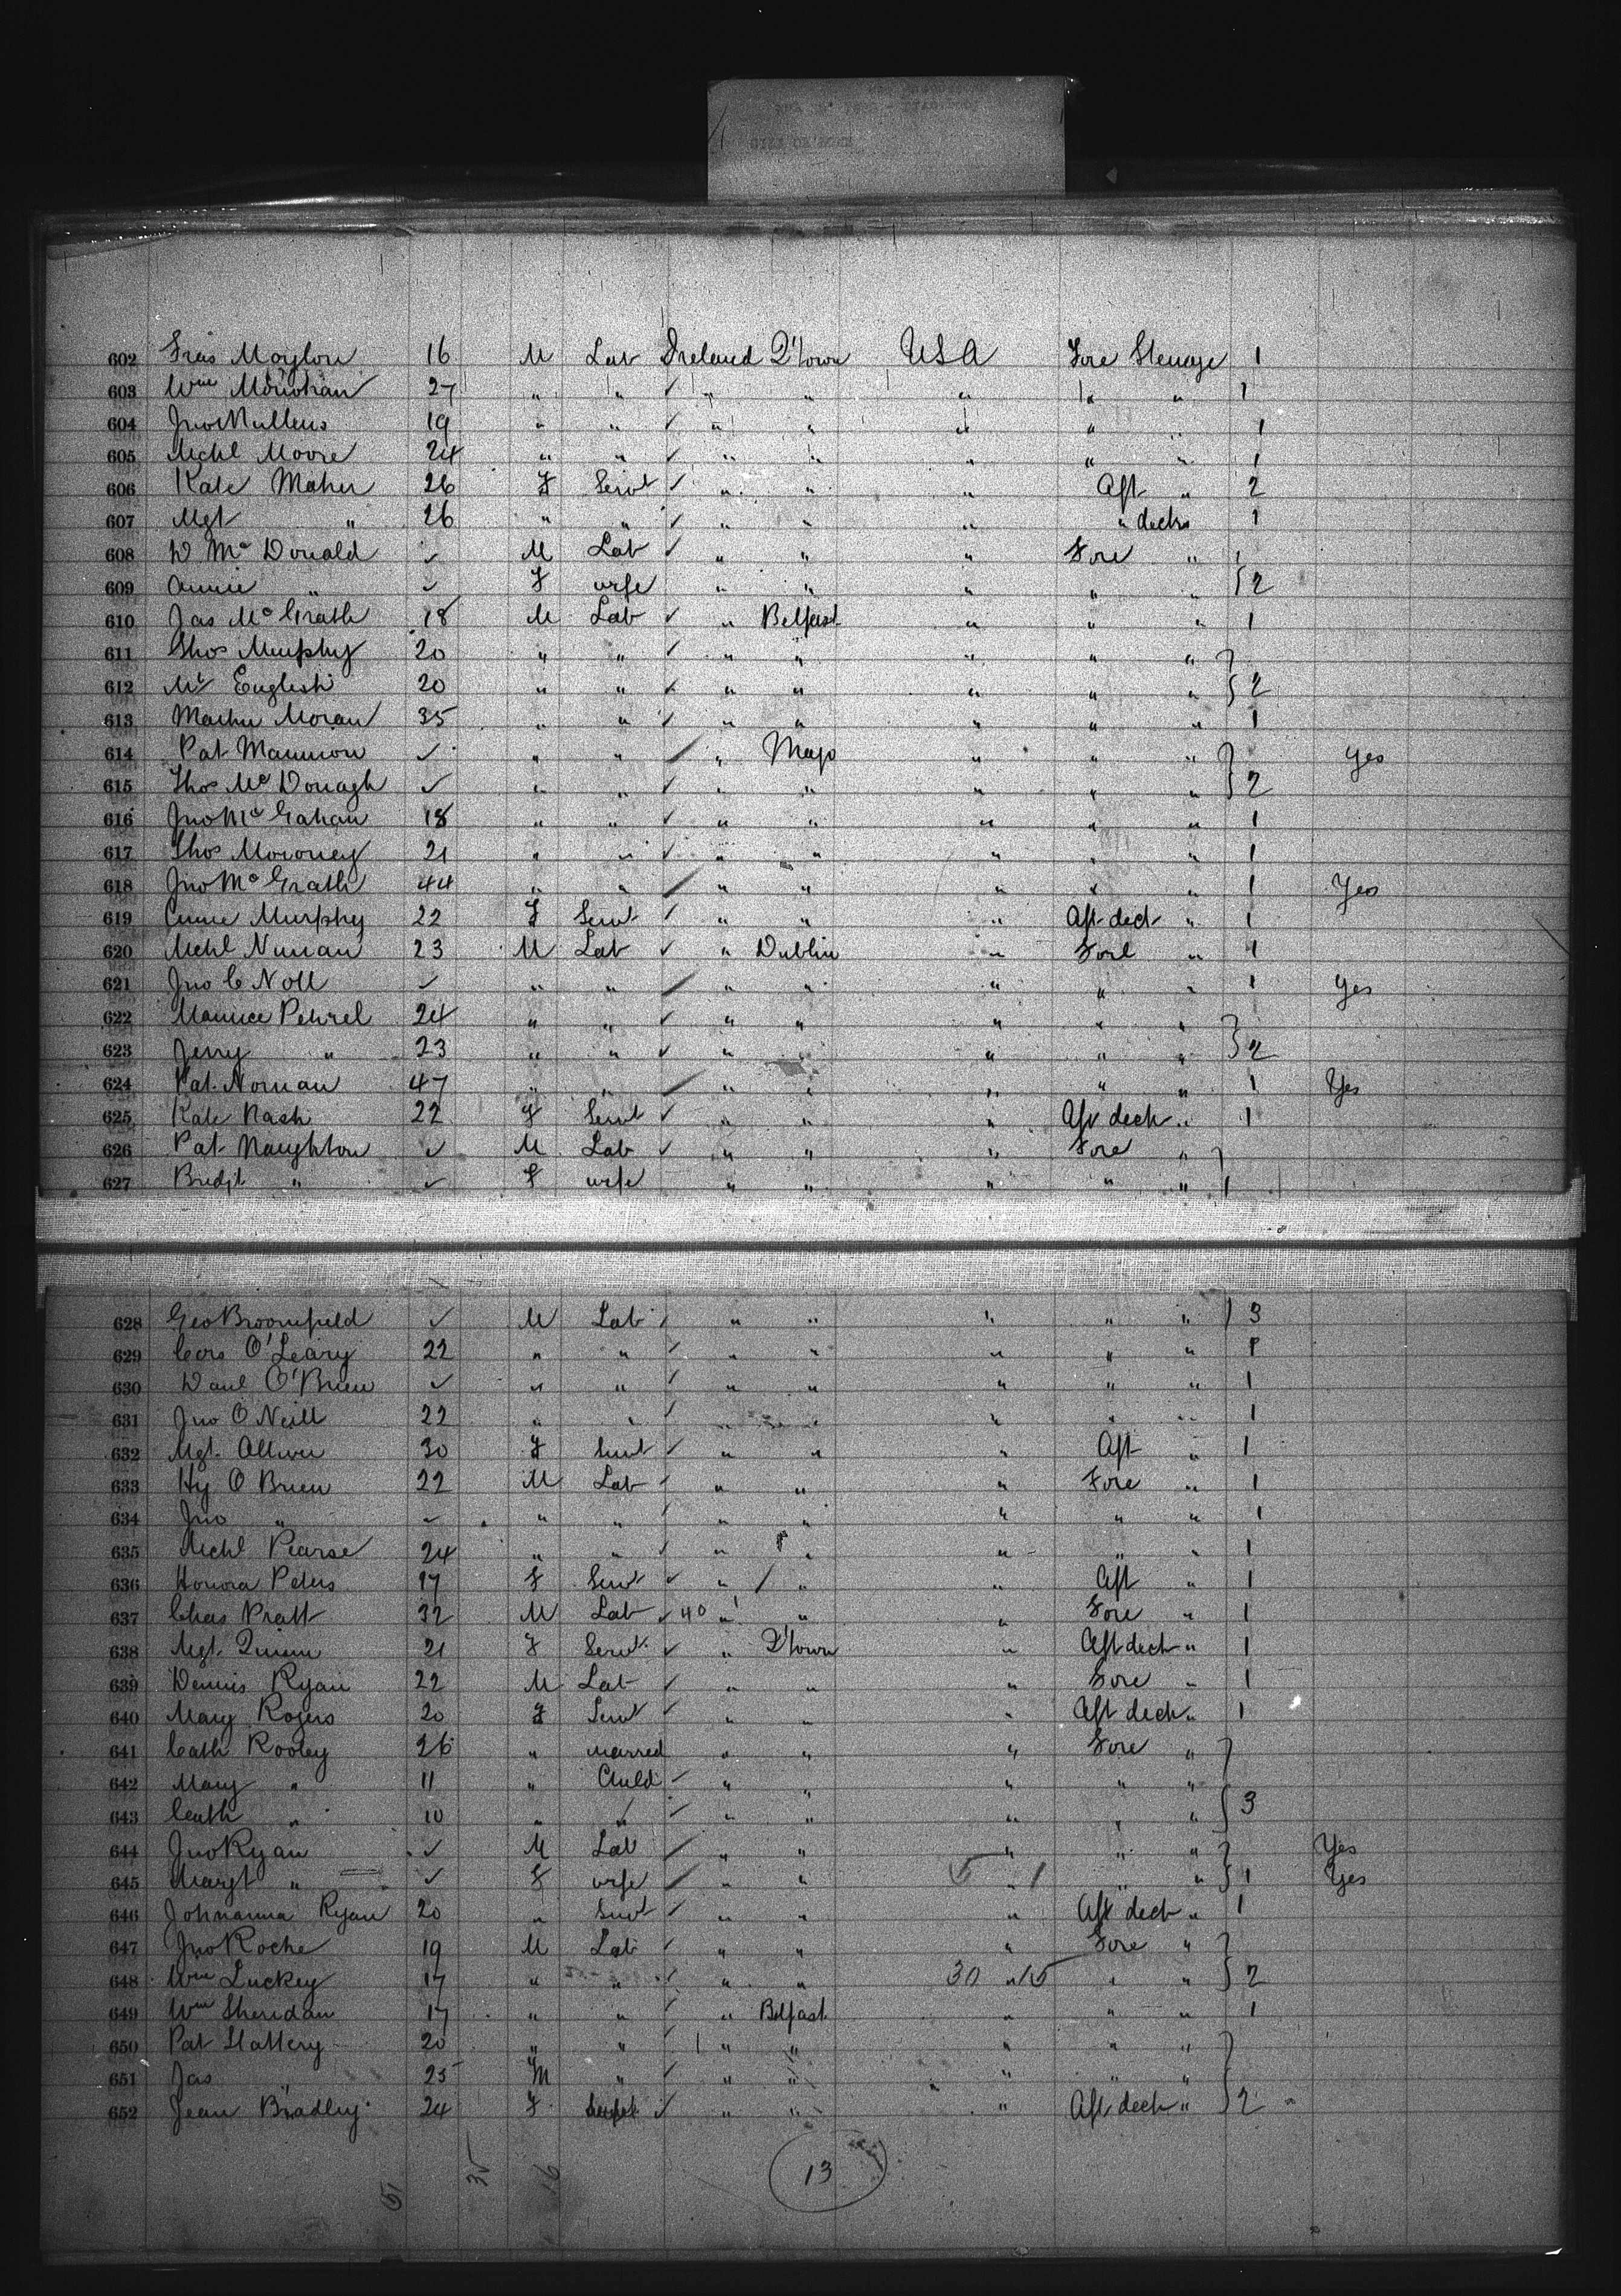 602 Fras Moylon 16 M Lab Ireland Q'town USA Fore Steerage 1
603 Wm Monohan 27 " " ✓ " " " " " 1
604 Jno Mullens 19 " " ✓ " " " " " 1
605 Mchl Moore 24 " " ✓ " " " " " 1
606 Kate Maher 26 F Servt ✓ " " " Aft " 2
607 Mgt " 26 " " ✓ " " " " deck " 1
608 D McDonald ✓ M Lab ✓ " " " Fore "
609 Annie " ✓ F wife " " " " " } 2
610 Jas McGrath 18 M Lab ✓ " Belfast " " " 1
611 Thos Murphy 20 " " ✓ " " " " " }
612 Ml English 20 " " ✓ " " " " " } 2
613 Moran 35 " " ✓ " " " " " 1
614 Pat Mannion ✓ " " / " Mayo " " " } Yes
615 Thos McDonagh ✓ " " ✓ " " " " " } 2
616 Jno McGahan 18 " " ✓ " " " " " 1
617 Thos Moroney 21 " " ✓ " " " " " 1
618 Jno McGrath 44 " " / " " " " " 1 Yes
619 Annie Murphy 22 F Servt ✓ " " " Aft deck " 1
620 Mchl Nunan 23 M Lab ✓ " Dublin " Fore " 1
621 Jno C Noll ✓ " " / " " " " " 1 Yes
622 Maurice Petrel 24 " " ✓ " " " " " }
623 Jerry " 23 " " ✓ " " " " " } 2
624 Pat Nornan 47 " " / " " " " " 1 Yes
625 Kate Nash 22 F Servt ✓ " " " Aft deck " 1
626 Pat Naughton ✓ M Lab ✓ " " " Fore " }
627 Bridgt " ✓ F wife " " " " "
628 Geo Broomfield ✓ M Lab ✓ " " " " " } 3
629 Cors O'Leary 22 " " ✓ " " " " " 1
630 Danl O'Brien ✓ " " ✓ " " " " " 1
631 Jno O Neill 22 " " ✓ " " " " " 1
632 Mgt. 30 F Servt ✓ " " " Aft " 1
633 Hy O Brien 22 M Lab ✓ " " " Fore " 1
634 Jno " ✓ " " ✓ " " " " " 1
635 Mchl Pearse 24 " " ✓ " " " " " 1
636 Honora Peters 17 F Servt ✓ " " " Aft " 1
637 Chas Pratt 32 M Lab ✓ 40 " " " Fore " 1
638 Mgt. Quinn 21 F Servt. ✓ " Q'town " Aft deck " 1
639 Dennis Ryan 22 M Lab ✓ " " " Fore " 1
640 Mary Rogers 20 F Servt ✓ " " " Aft deck " 1
641 Cath Rooley 26 " married " " " Fore " }
642 Mary " 11 " Child ✓ " " " " "
643 Cath " 10 " " ✓ " " " " " } 3
644 Jno Ryan ✓ M Lab / " " " " " } Yes
645 Margt " ✓ F wife / " " 5 " 1 " " } 1 Yes
646 Johnanna Ryan 20 " Servt ✓ " " " Aft deck " 1
647 Jno Roche 19 M Lab ✓ " " " Fore " }
648 Wm Luckey 17 " " ✓ " " 30 " 15 " " } 2
649 Wm Sheridan 17 " " " Belfast " " " 1
650 Pat Slattery 20 " " " " " " " }
651 Jas " 25 M " ✓ " " " " "
652 Jean Bradley 24 F ✓ " " " Aft deck " } 2
13